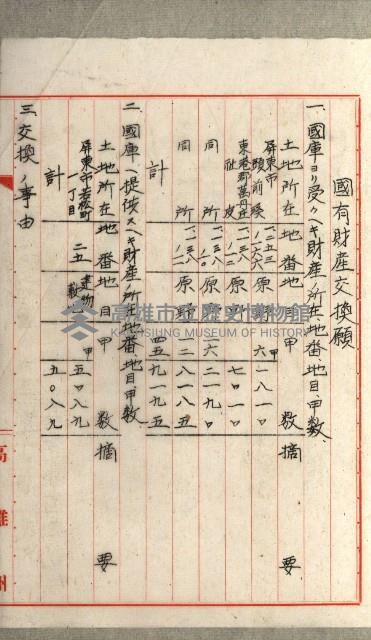 國有財產交換願
一、國庫ヨリ受クヘキ財產ノ所在、地番、地目、甲數、
土地所在 番地 地目 甲數 摘要
屏東市頭前溪 一二五三 原 六一八一〇
東港郡萬丹庄社皮 原 七〇一〇
同所 原 六二一九〇
同所 原 一二八一八五
計 四五九一九五
二、國庫ヘ提供スヘキ財產ノ所在、地番、地目、甲數
土地所在 番地 地目 甲數 摘要
屏東市若松町一丁目 二五 建物敷地 五〇八九
計 五〇八九
三、交換ノ事由
高雄州
高雄市立歷史博物館
KAOHSIUNG MUSEUM OF HISTORY